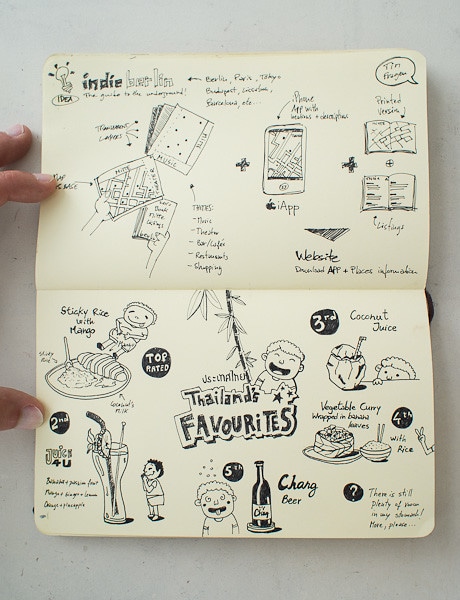 IDEA
indie berlin
The guide to the underground!
Berlin, Paris, Tokyo
Budapest, Stockholm,
Barcelona, etc...
Tim
Transparent
Layers
MUSIC
MAP
BASE
THEMES:
- Music
- Theater
- Bar/Cafés
- Restaurants
- Shopping
iPhone
App with
locations + descriptions
iApp
Printed
Version
Listings
Website
Download APP + Places information
Sticky Rice
with
Mango
Sticky
Rice
TOP
RATED
Coconut's
MILK
Thailand's
FAVOURITES
3rd
Coconut
Juice
Vegetable Curry
Wrapped in banana
leaves
4th
with
Rice
2nd
Juice
4U
Banana + passion fruit
Mango + ginger + lemon
Orange + pineapple
5th
Chang
Beer
Chang
?
There is still
plenty of room
in my stomach!
More, please...